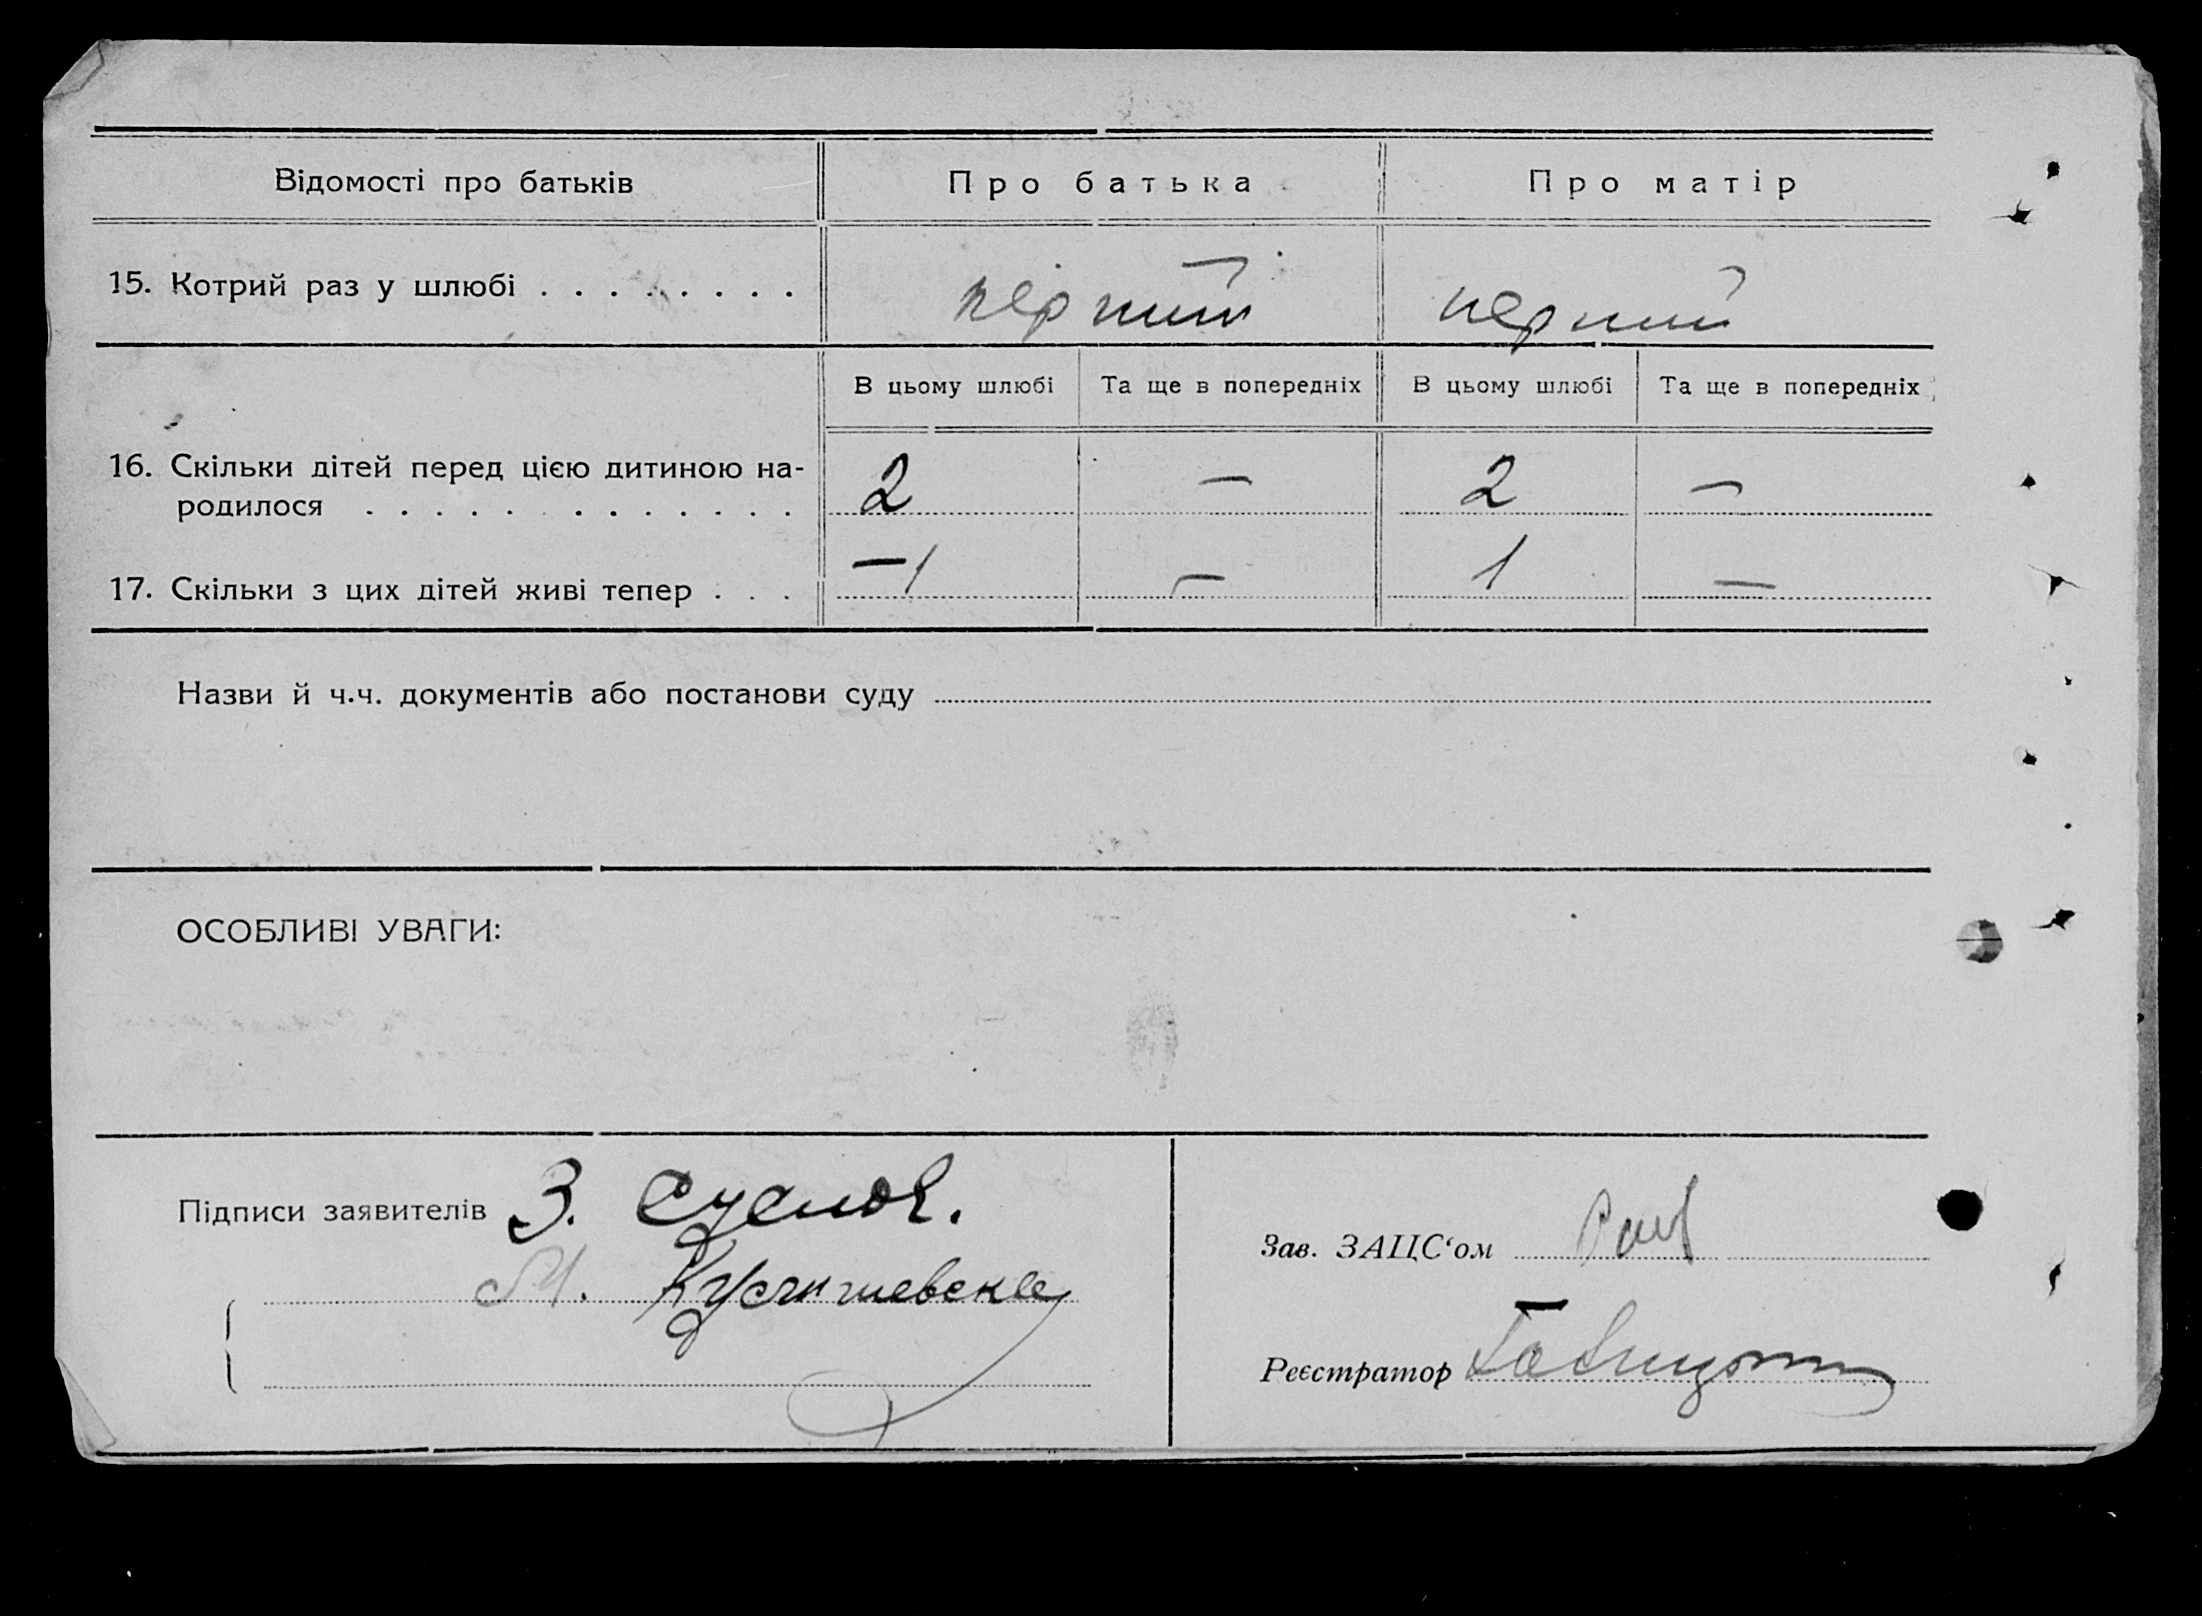 Відомості про батьків
Про батька
Про матір
15. Котрий раз у шлюбі . . . . . . . .
перший
перший
В цьому шлюбі
Та ще в попередніх
В цьому шлюбі
Та ще в попередніх
16. Скільки дітей перед цією дитиною на-
родилося . . . . . . . . . . . . .
2
—
2
—
17. Скільки з цих дітей живі тепер . . .
— 1
—
1
—
Назви й ч.ч. документів або постанови суду
ОСОБЛИВІ УВАГИ:
Підписи заявителів З.
М.
Зав. ЗАЦС‘ом
Реєстратор